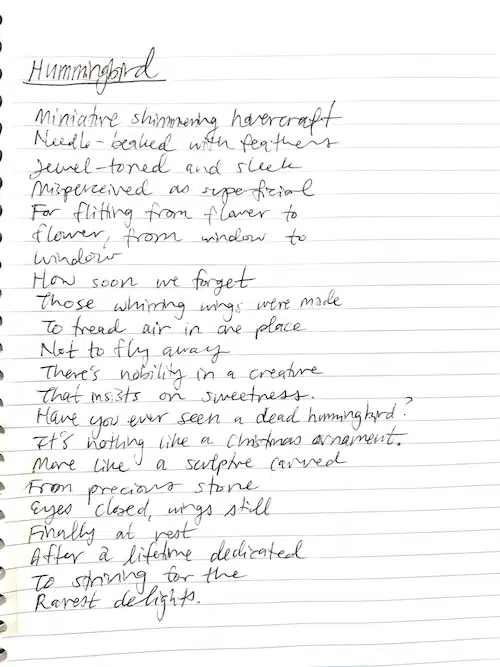 Hummingbird
Miniature shimmering hovercraft
Needle-beaked with feathers
Jewel-toned and sleek
Misperceived as superficial
For flitting from flower to
flower, from window to
window
How soon we forget
Those whirring wings were made
To tread air in one place
Not to fly away
There's nobility in a creature
That insists on sweetness.
Have you ever seen a dead hummingbird?
It's nothing like a Christmas ornament.
More like a sculpture carved
From precious stone
Eyes closed, wings still
Finally at rest
After a lifetime dedicated
To striving for the
Rarest delights.